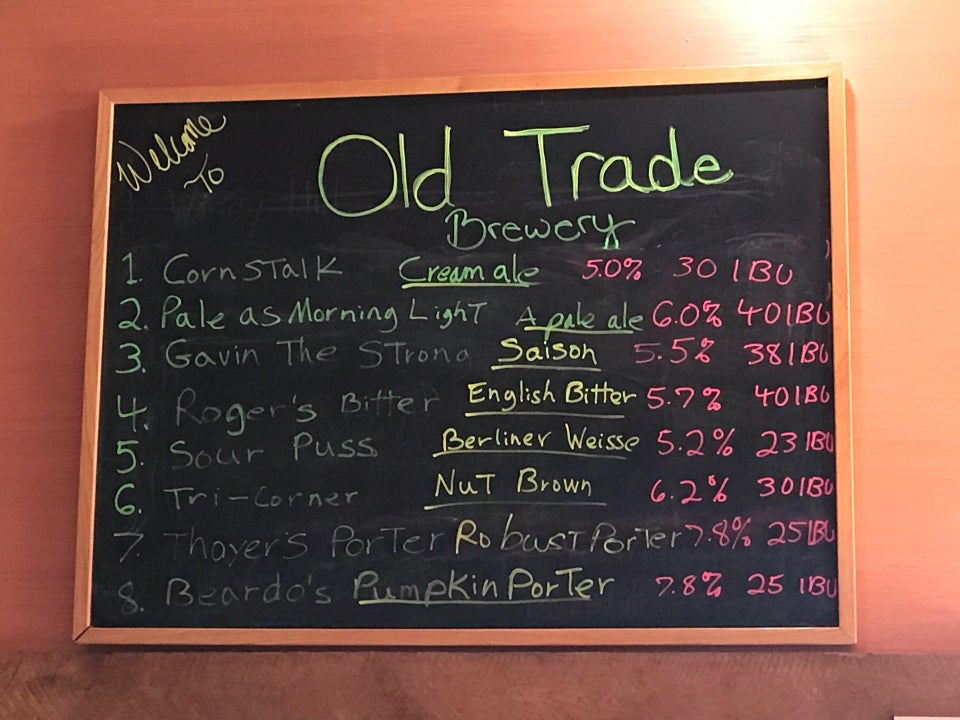 Welcome
To
Old Trade
Brewery
1. CornSTalK Cream ale 5.0% 30 IBU
2. Pale as Morning LighT A pale ale 6.0% 40 IBU
3. Gavin The STrong Saison 5.5% 38 IBU
4. Roger's Bitter English Bitter 5.7% 40 IBU
5. Sour Puss Berliner Weisse 5.2% 23 IBU
6. Tri-Corner NuT Brown 6.2% 30 IBU
7. Thayer's PorTer RobusT PorTer 7.8% 25 IBU
8. Beardo's Pumpkin PorTer 7.8% 25 IBU